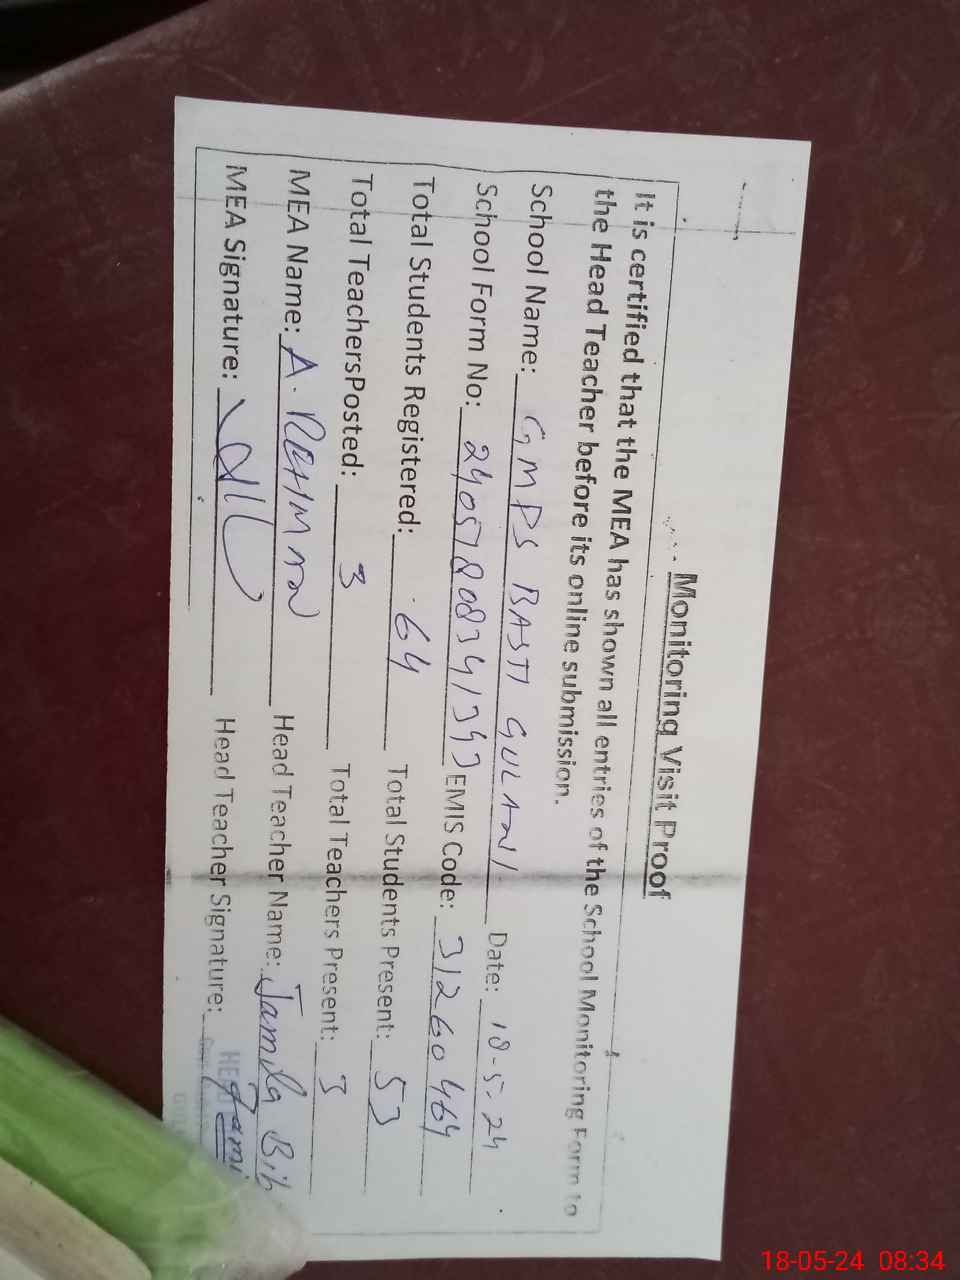 Monitoring Visit Proof
It is certified that the MEA has shown all entries of the School Monitoring Form to
the Head Teacher before its online submission.
School Name: GMPS BASTI GULANI Date: 18-5-24
School Form No: EMIS Code: 31260464
Total Students Registered: 64 Total Students Present: 53
Total TeachersPosted: 3 Total Teachers Present: 3
MEA Name: A. REHMAN Head Teacher Name: Jamila Bib
MEA Signature: Head Teacher Signature: Jami
18-05-24 08:34